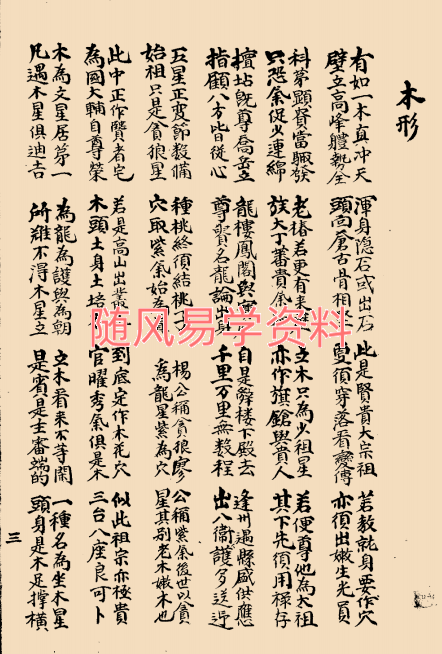 木形
有如一木真冲天
壁立高峰體勢全
渾身隱石或出石
頭向蒼古骨相
此是賢貴大宗祖
須穿落看變傳
若教就身要作穴
亦須出嫩生先員
科茅顯賽當驟發
只恐氣促少連綿
老樁若更有来
放大丁蕃貴
立木只為少祖星
亦作旗鎗與貴人
若便尊他為大祖
其下先須用祿存
坫既尊喬岳立
指顧八方皆從心
龍樓鳳閣與寶
尊賢名龍論出身
自是辭樓下殿去
千里万里無数程
逢州遇縣盛供應
出入衛護多送迎
五星正变節数備
始祖只是貪狼星
種桃終須結桃子
穴取紫氣始為
楊公稱貪狼廖
為龍星紫為穴
公稱紫氣後世以貪
星其别老木嫩木也
此中正作賢者宅
為國大輔自尊榮
若是高山出叢
木頭土身土培
到底定作木花穴
官曜秀氣俱是木
似此祖宗亦極貴
三台八座良可卜
木為文星居第一
凡遇木星俱迪吉
為龍為護與為朝
所雖不得木星立
立木看来不寺閑
是賓是主審端的
一種名為坐木星
頭身是木足撑橫
三
随风易学资料